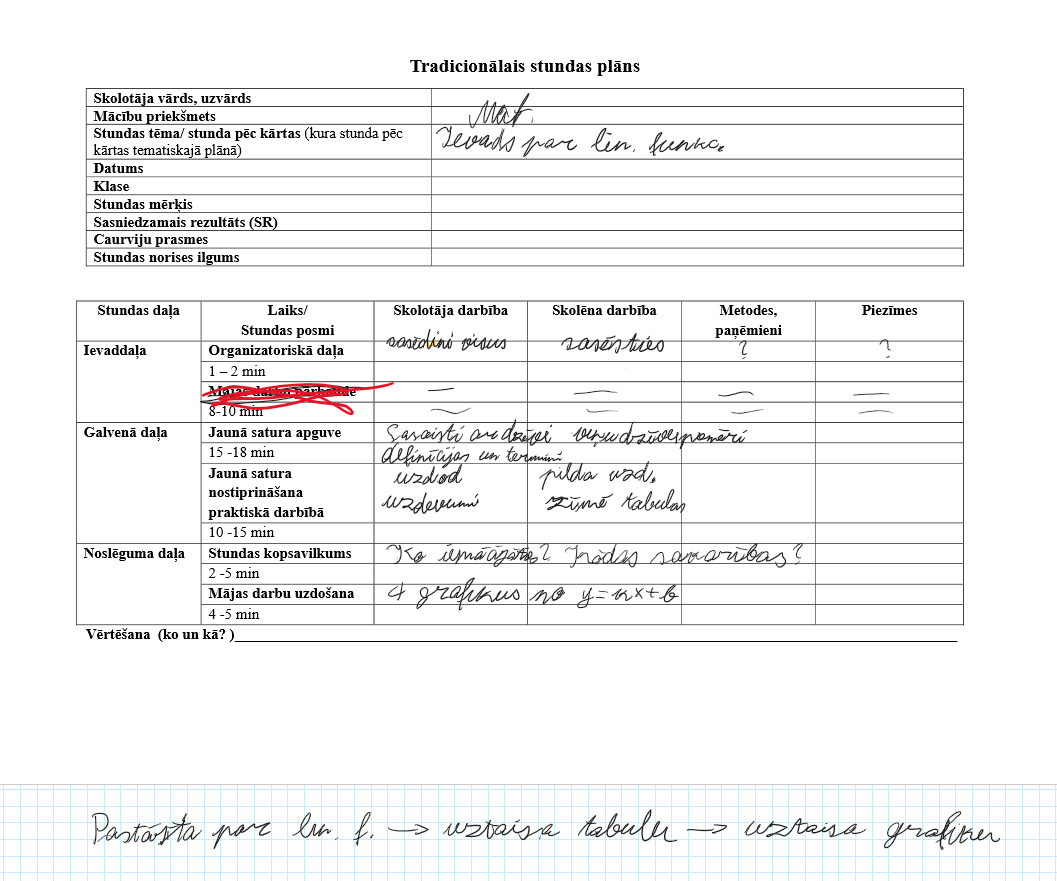 Tradicionālais stundas plāns
Skolotāja vārds, uzvārds
Mācību priekšmets Mat.
Stundas tēma/ stunda pēc kārtas (kura stunda pēc
kārtas tematiskajā plānā) Ievads par lin. funkc.
Datums
Klase
Stundas mērķis
Sasniedzamais rezultāts (SR)
Caurviju prasmes
Stundas norises ilgums
Stundas daļa Laiks/ Skolotāja darbība Skolēna darbība Metodes, Piezīmes
Stundas posmi paņēmieni
Ievaddaļa Organizatoriskā daļa sasēdini visus sasēsties ? ?
1 – 2 min
Mājas darbu pārbaude — — — —
8-10 min — — — —
Galvenā daļa Jaunā satura apguve Sasaisti ar dzīvi
15 -18 min definīcijas un termini
Jaunā satura uzdod pilda uzd.
nostiprināšana
praktiskā darbībā uzdevumi zīmē tabulas
10 -15 min
Noslēguma daļa Stundas kopsavilkums Ko iemācījāties? Kādas sakarības?
2 -5 min
Mājas darbu uzdošana 4 grafikus no y=kx+b
4 -5 min
Vērtēšana (ko un kā? )
Pastāsta par lin. f. → uztaisa tabulu → uztaisa grafiku